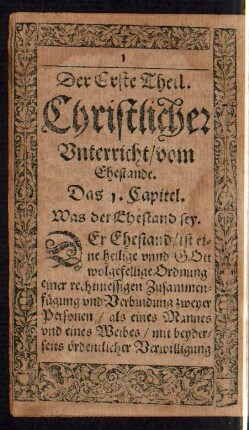 1
Der Erste Theil.
Christlicher
Vnterricht/vom
Ehestande.
Das 1. Capitel.
Was der Ehestand sey.
DEr Ehestand/ist ei-
ne heilige vnnd GOtt
wolgefellige Ordnung
einer rechtmessigen Zusammen-
fügung vnd Verbindung zweyer
Personen / als eines Mannes
vnd eines Weibes / mit beyder-
seits ördentlicher Verwilligung